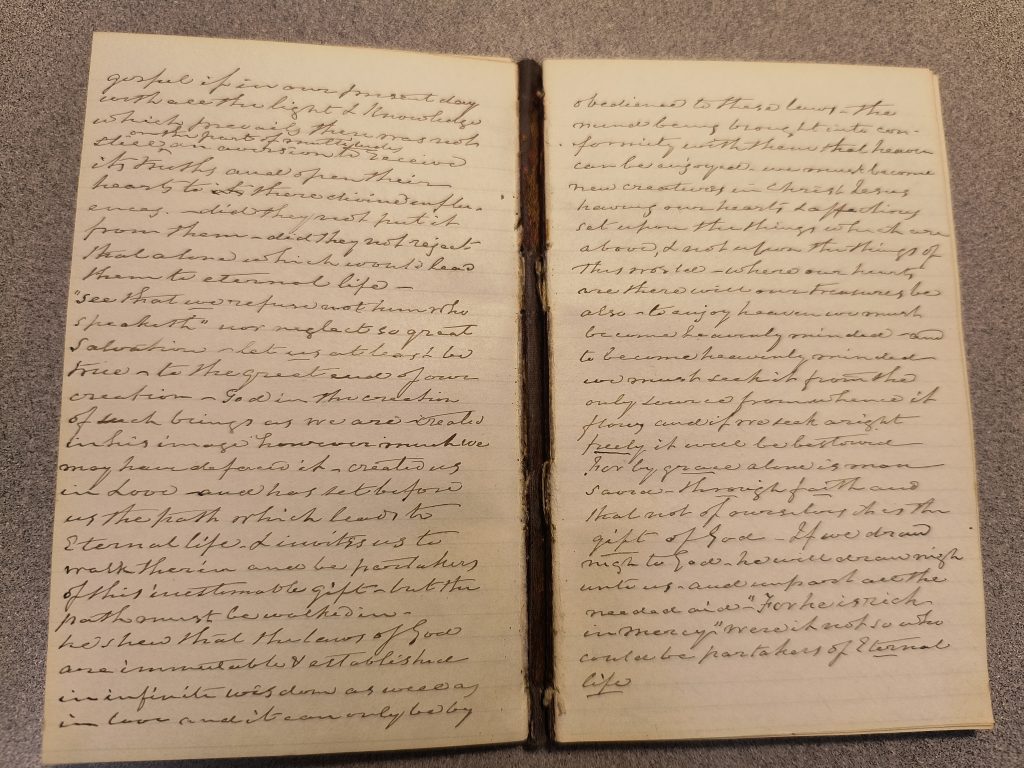 gospel if in our present day
with all the light & Knowledge
which prevails there was not
on the part of multitudes
still an aversion to receive
its truths and open their
hearts to Its there divine influ-
ences. did they not put it
from them - did they not reject
that alone which would lead
them to eternal life -
"see that we refuse not him who
speaketh" nor neglect so great
Salvation - let us at least be
true - to the great end of our
creation - God in the creation
of such beings as we are created
in his image however much we
may have defaced it - created us
in Love and has set before
us the path which leads to
Eternal life. & invites us to
walk therin and be partakers
of this inestimable gift - but the
path must be walked in -
he shew that the laws of God
are immutable & established
in infinite wisdom as well as
in love and it can only be by
obedience to these laws - the
mind being brought into con-
formity with them that heaven
can be enjoyed - we must become
new creatures in Christ Jesus
having our hearts & affections
set upon the things which are
above, & not upon the things of
this world - where our hearts
are there will our treasures be
also - to enjoy heaven we must
become heavenly minded and
to become heavenly minded
we must seek it from the
only source from whence it
flows and if we seek aright
freely it will be bestowed
For by grace alone is man
saved - through faith and
that not of ourselves it is the
gift of God - If we draw
nigh to God - he will draw nigh
unto us - and impart all the
needed aid - "For he is rich
in mercy," were it not so who
could be partakers of Eternal
life